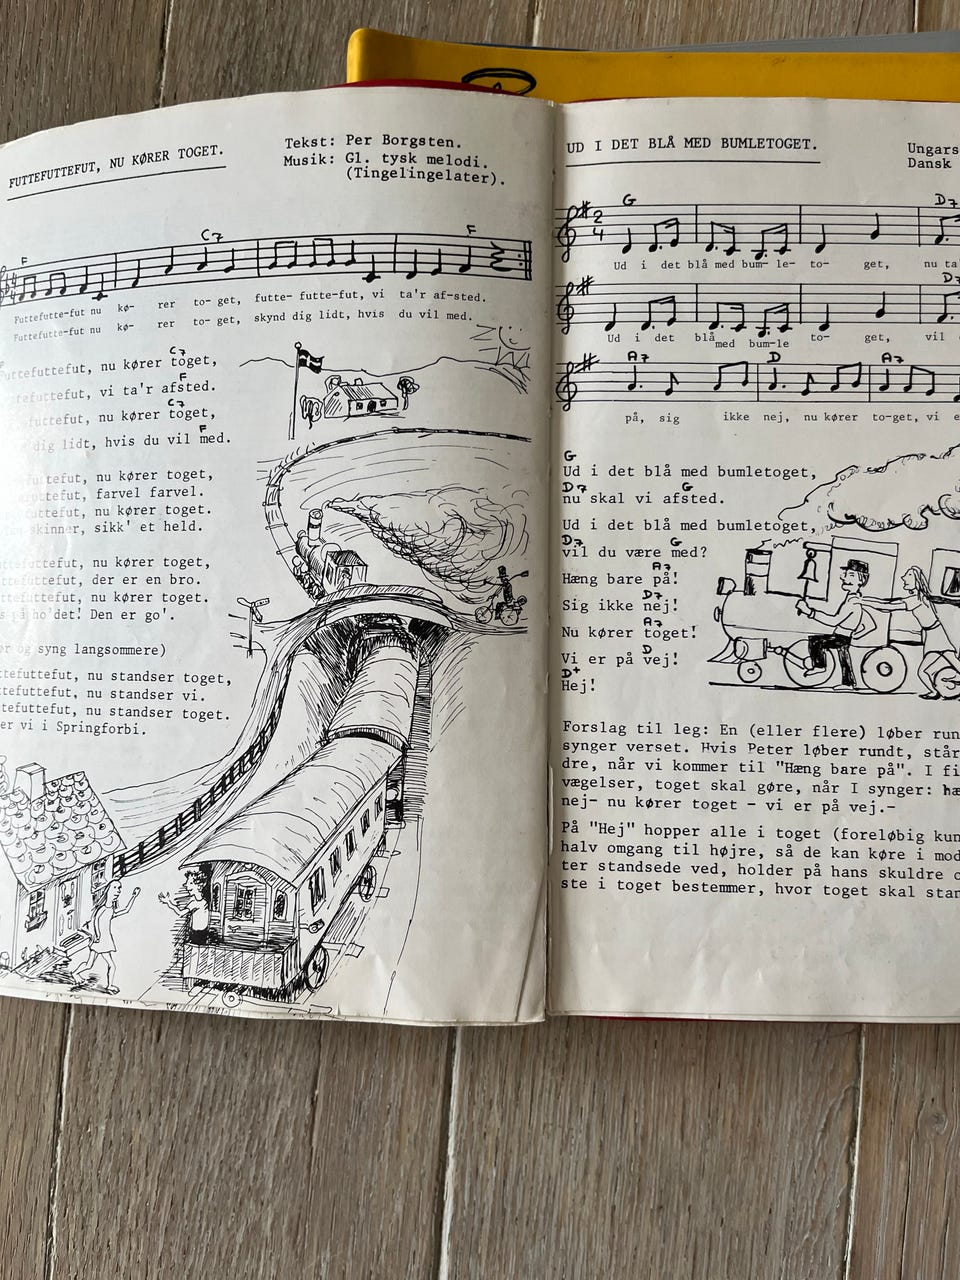 FUTTEFUTTEFUT, NU KØRER TOGET.
Tekst: Per Borgsten.
Musik: Gl. tysk melodi.
(Tingelingelater).
F C7 F
Futtefutte-fut nu kø- rer to- get, futte- futte-fut, vi ta'r af-sted.
Futtefutte-fut nu kø- rer to- get, skynd dig lidt, hvis du vil med.
C7
futtefut, nu kører toget,
F
tefuttefut, vi ta'r afsted.
C7
futtefut, nu kører toget,
F
dig lidt, hvis du vil med.
futtefut, nu kører toget,
futtefut, farvel farvel.
futtefut, nu kører toget.
skinner, sikk' et held.
futtefut, nu kører toget,
ttefuttefut, der er en bro.
ttefuttefut, nu kører toget.
på ho'det! Den er go'.
og syng langsommere)
tefuttefut, nu standser toget,
ttefuttefut, nu standser vi.
tefuttefut, nu standser toget.
er vi i Springforbi.
UD I DET BLÅ MED BUMLETOGET.
Ungars
Dansk
G D7
2
4
Ud i det blå med bum- le- to- get, nu ta
D7
Ud i det blå med bum-le to- get, vil
A7 D A7
på, sig ikke nej, nu kører to-get, vi e
G
Ud i det blå med bumletoget,
D7 G
nu skal vi afsted.
Ud i det blå med bumletoget,
D7 G
vil du være med?
A7
Hæng bare på!
D7
Sig ikke nej!
A7
Nu kører toget!
D
Vi er på vej!
D+
Hej!
Forslag til leg: En (eller flere) løber run
synger verset. Hvis Peter løber rundt, står
dre, når vi kommer til "Hæng bare på". I fi
vægelser, toget skal gøre, når I synger: hæ
nej- nu kører toget - vi er på vej.-
På "Hej" hopper alle i toget (foreløbig kun
halv omgang til højre, så de kan køre i mod
ter standsede ved, holder på hans skuldre o
ste i toget bestemmer, hvor toget skal stan